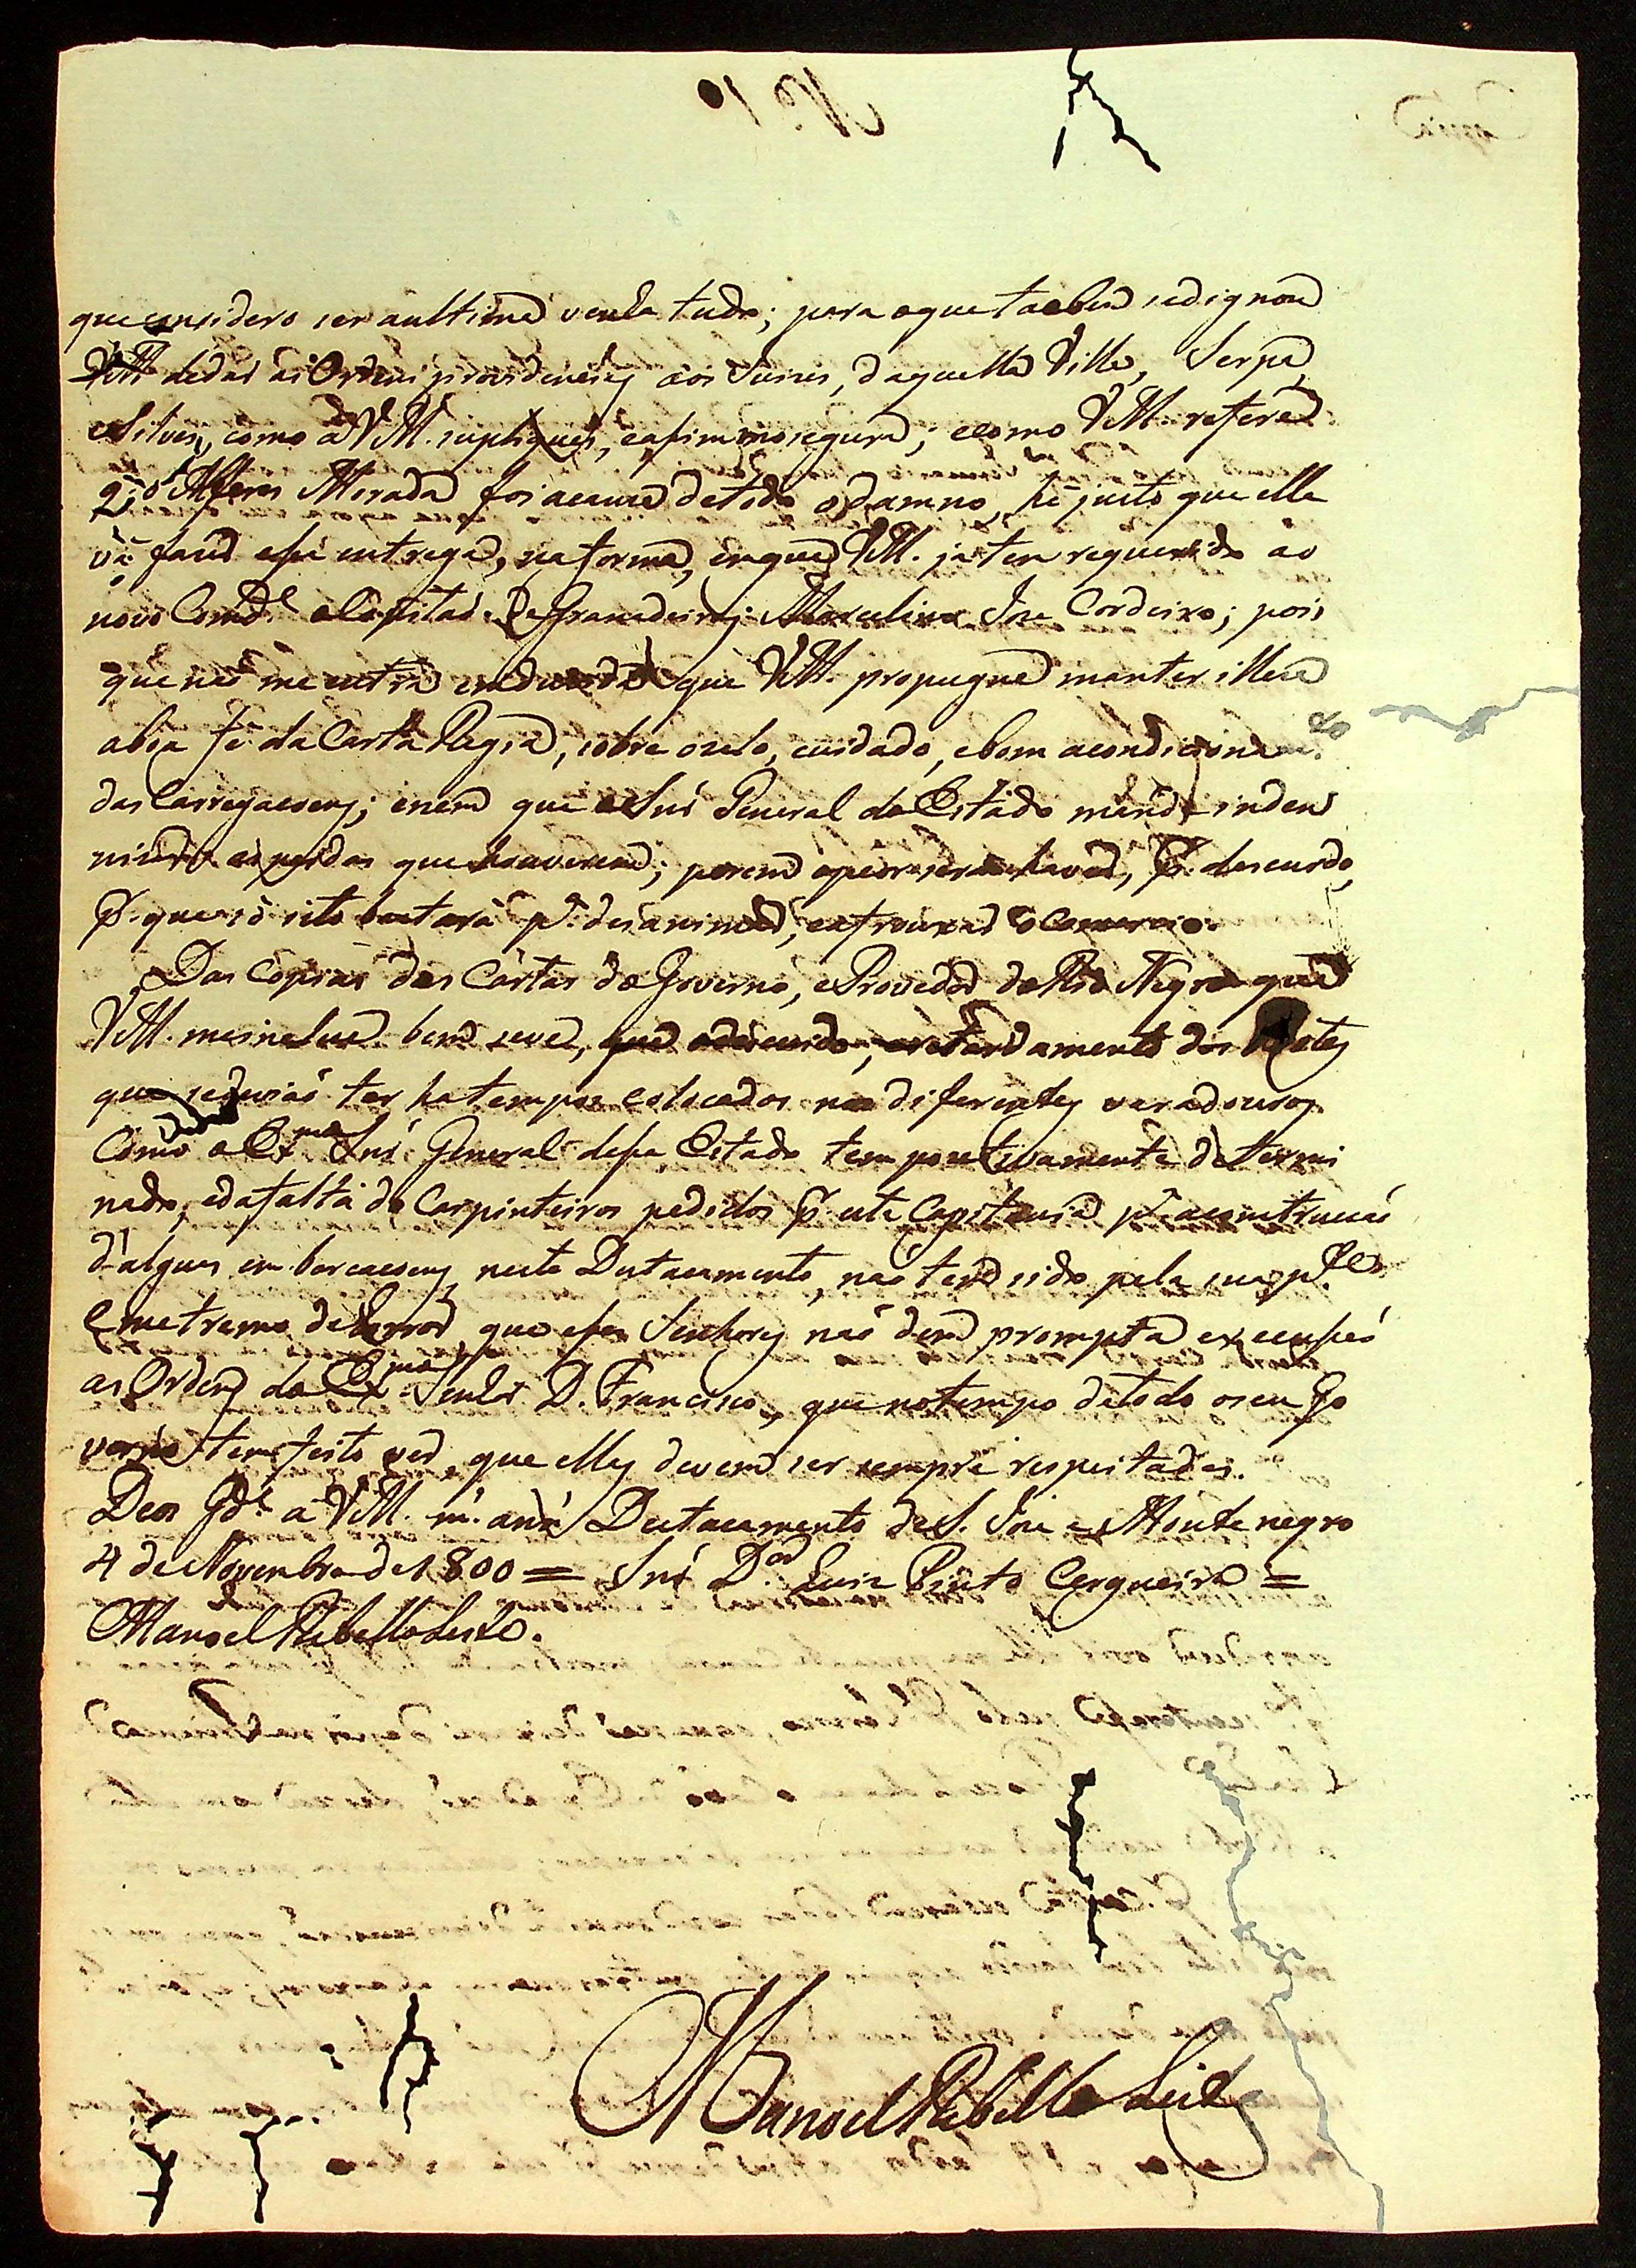 que considero ser a ultima venha tudo; para o que tãobem se dignou
VM. de dar as Ordens, e providencias aos Juizes, daquella Villa, Serpa,
e Silves, como a VM. supliquei, e assim mo segura; e como VM. refere
q. o Alferes Morada foi a cauza de todo o damno, hé justo que elle
vá fazer essa entrega, na forma, em que VM. já tem requerido ao
novo Comd.e o Capitaõ de Granadeiros Marcelino Joze Cordeiro; pois
que naõ me entra em duvida que VM. propugne manter illeza
a boa fé da Carta Regia, sobre o zelo, cuidado, e bom acondicionam.to
das Carregaçoens; e nem que o Snr. General do Estado mande inden
nizar as perdas que houverem; porem o peor será havel-as, p. descuido,
p. que só isto bastará p.a desanimar, e afrouxar o Comercio.
Das Copias das Cartas do Governo, e Provedor do Rio Negro que
VM. me inclue bem se ve, que o descuido, e retardamento dos Botes
que se deviaõ ter ha tempos colocados nos diferentes varadouros
Como o Ex.mo Snr. General desse Estado tem pozitivamente determi
nado, e da falta de Carpinteiros pedidos p. esta Capitania p.a a construcaõ
d'algumas embarcacoens neste Destacamento, naõ tem sido pela sua p.te
e me tremo de horror que esses Senhores naõ dem prompta execussaõ
as Ordens do Ex.mo Senhor D. Francisco, que no tempo de todo o seu Go
verno tem feito ver, que ellas devem ser sempre respeitadas.
Deos G.de a VM. m. an. Destacamento de S. Joze de Montenegro
4 de Novembro de 1800 = Snr. D.or Luiz Pinto Cerqueira =
Manoel Rebello Leite.
Manoel Rebello Leite